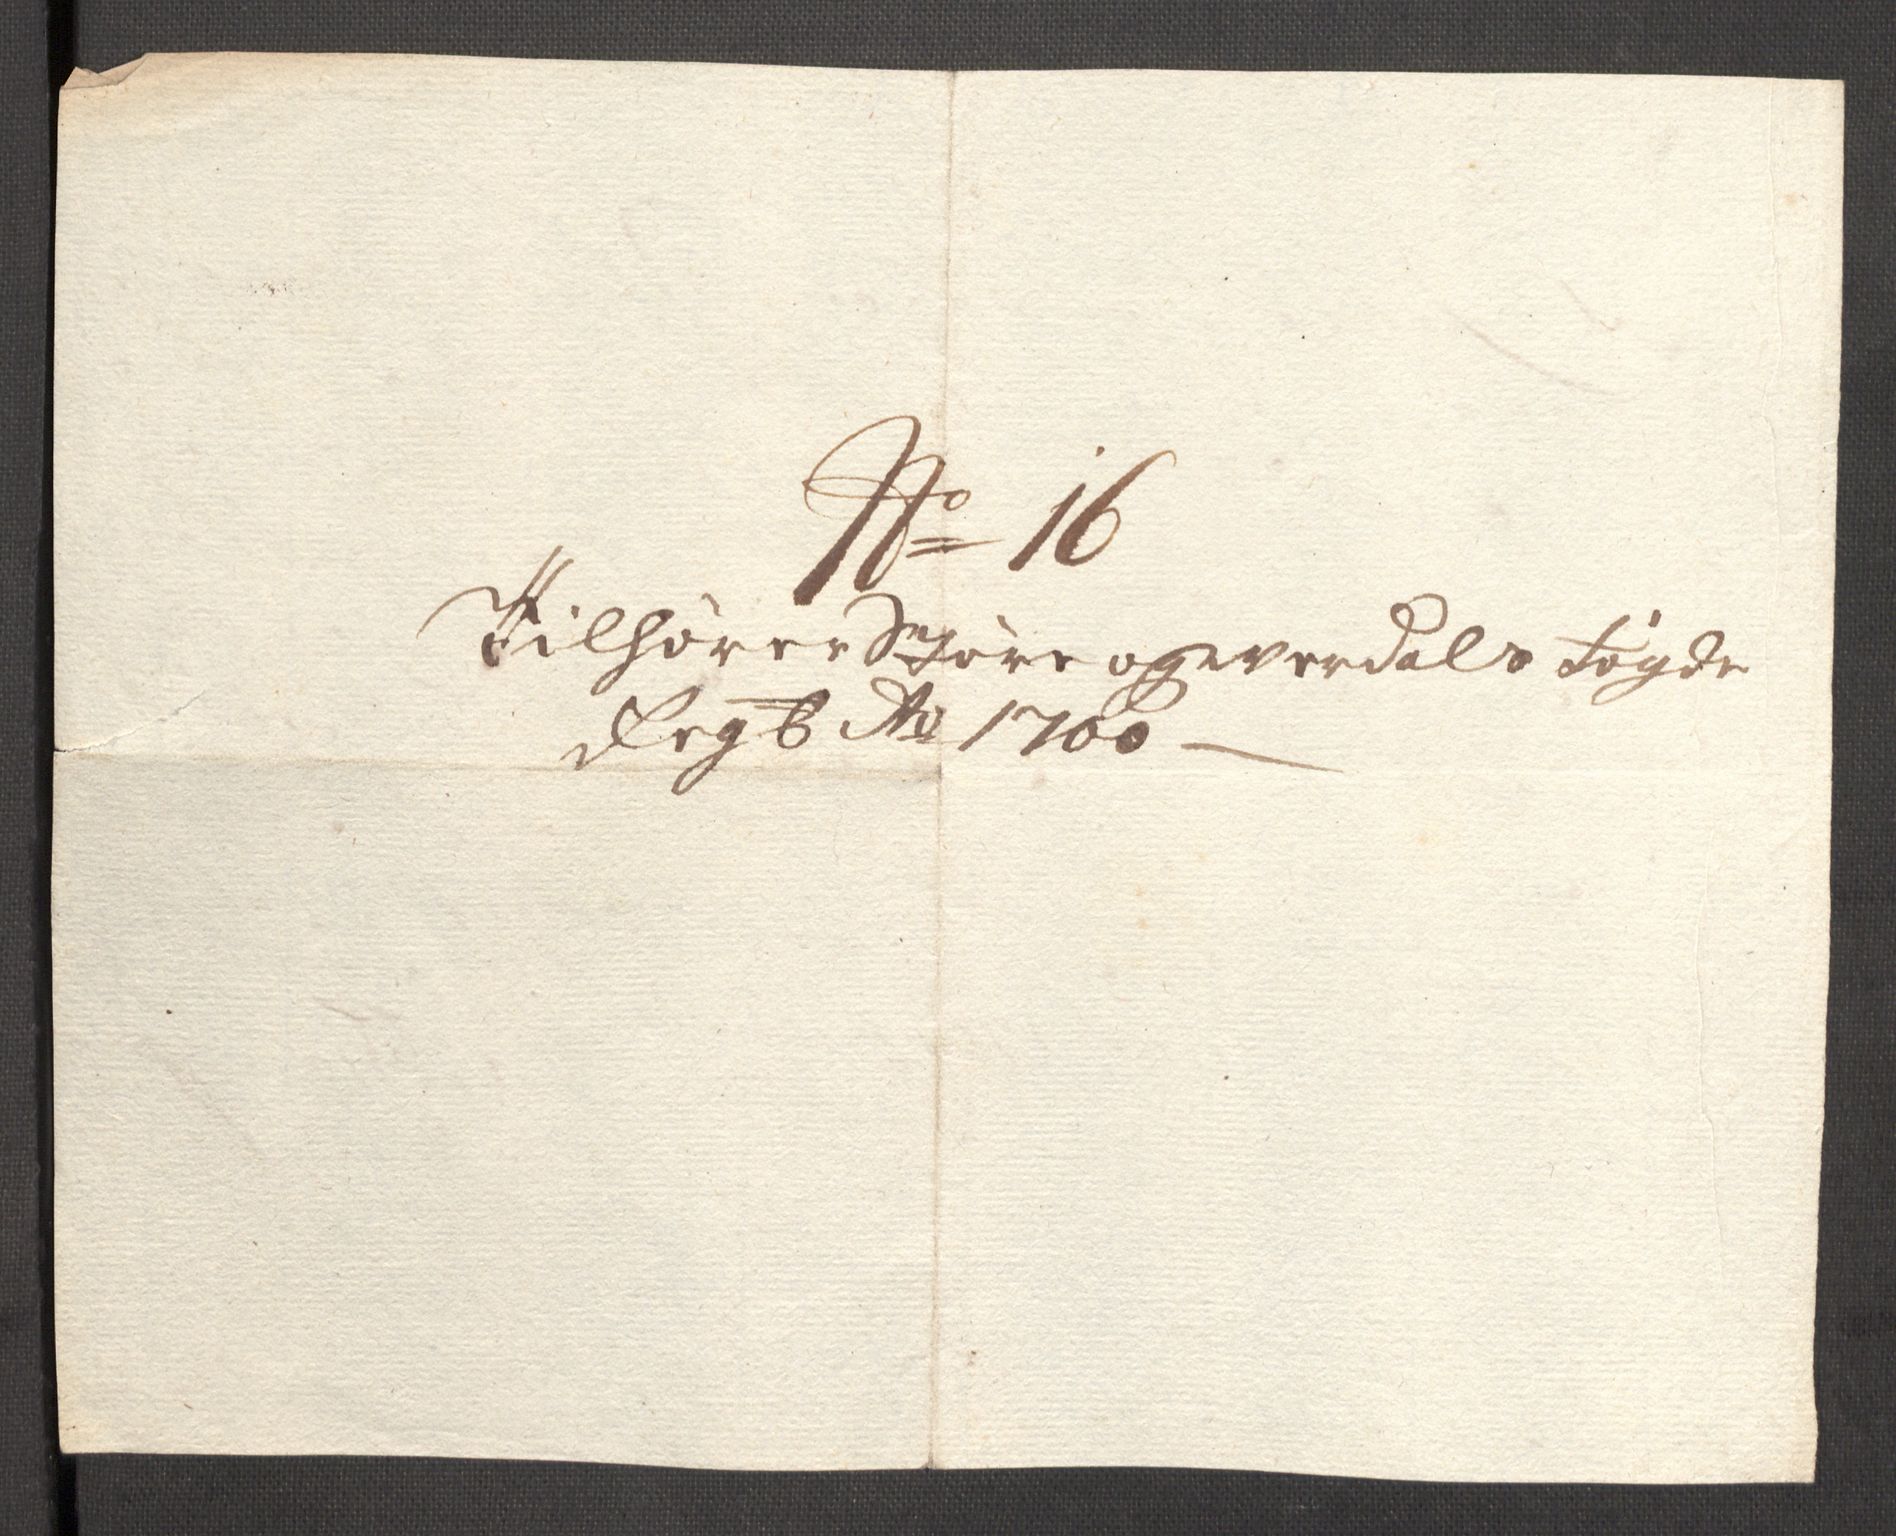 No 16
Tilhører Støre og Værdals fögde
Regsb Ao 1700